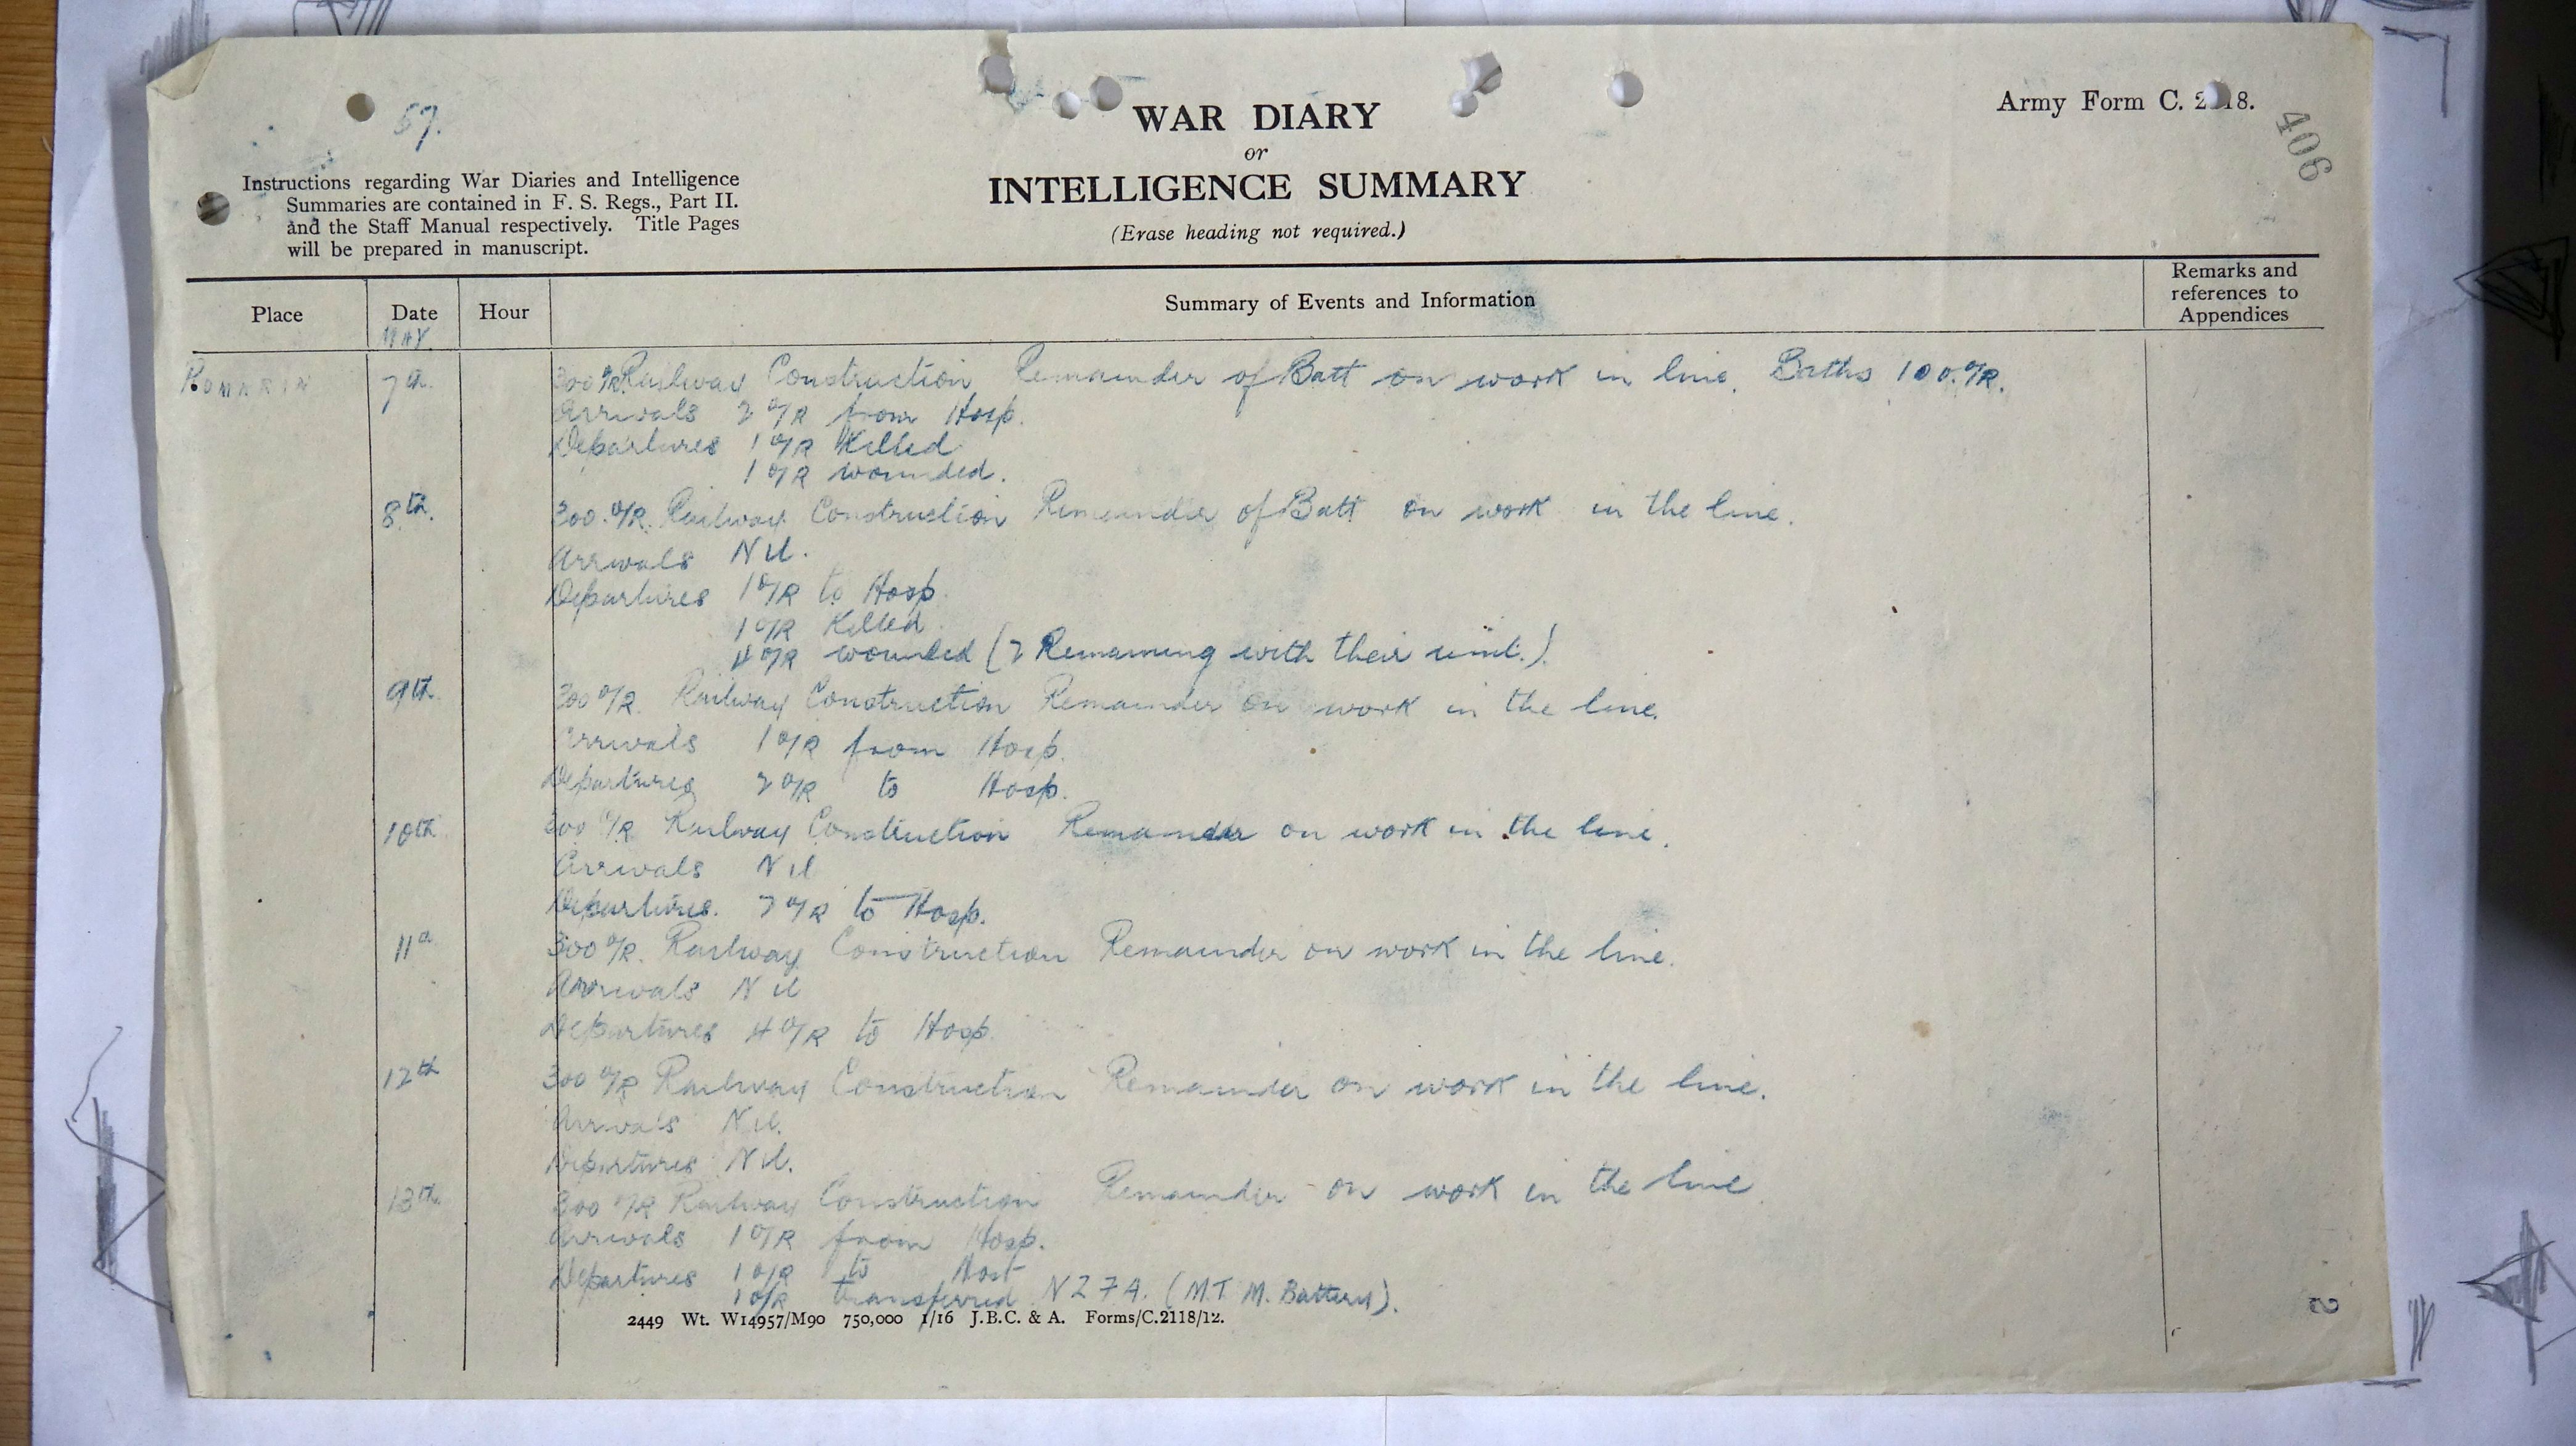 57.
WAR DIARY
or
INTELLIGENCE SUMMARY
(Erase heading not required.)
Army Form C. 2 18.
406
Instructions regarding War Diaries and Intelligence
Summaries are contained in F. S. Regs., Part II.
and the Staff Manual respectively. Title Pages
will be prepared in manuscript.
Place Date Hour Summary of Events and Information Remarks and references to Appendices
MAY
ROMARIN 7th 300 O/R Railway Construction Remainder of Batt on work in line. Baths 100. O/R.
Arrivals 2 O/R from Hosp.
Departures 1 O/R Killed
1 O/R wounded.
8th. 300. O/R. Railway Construction Remainder of Batt on work in the line.
Arrivals Nil.
Departures 1 O/R to Hosp.
1 O/R Killed
4 O/R wounded (2 Remaining with their unit.).
9th 300 O/R. Railway Construction Remainder on work in the line.
Arrivals 1 O/R from Hosp.
Departures 2 O/R to Hosp.
10th 300 O/R Railway Construction Remainder on work in the line.
Arrivals Nil
Departures. 7 O/R to Hosp.
11th 300 O/R. Railway Construction Remainder on work in the line.
Arrivals Nil
Departures 4 O/R to Hosp
12th 300 O/R Railway Construction Remainder on work in the line.
Arrivals Nil.
Departures Nil.
13th 300 O/R Railway Construction Remainder on work in the line
Arrivals 1 O/R from Hosp.
Departures 1 O/R to
1 O/R transferred N Z F A. (M.T. M. Battery).
2449 Wt. W14957/M90 750,000 1/16 J.B.C. & A. Forms/C.2118/12.
2